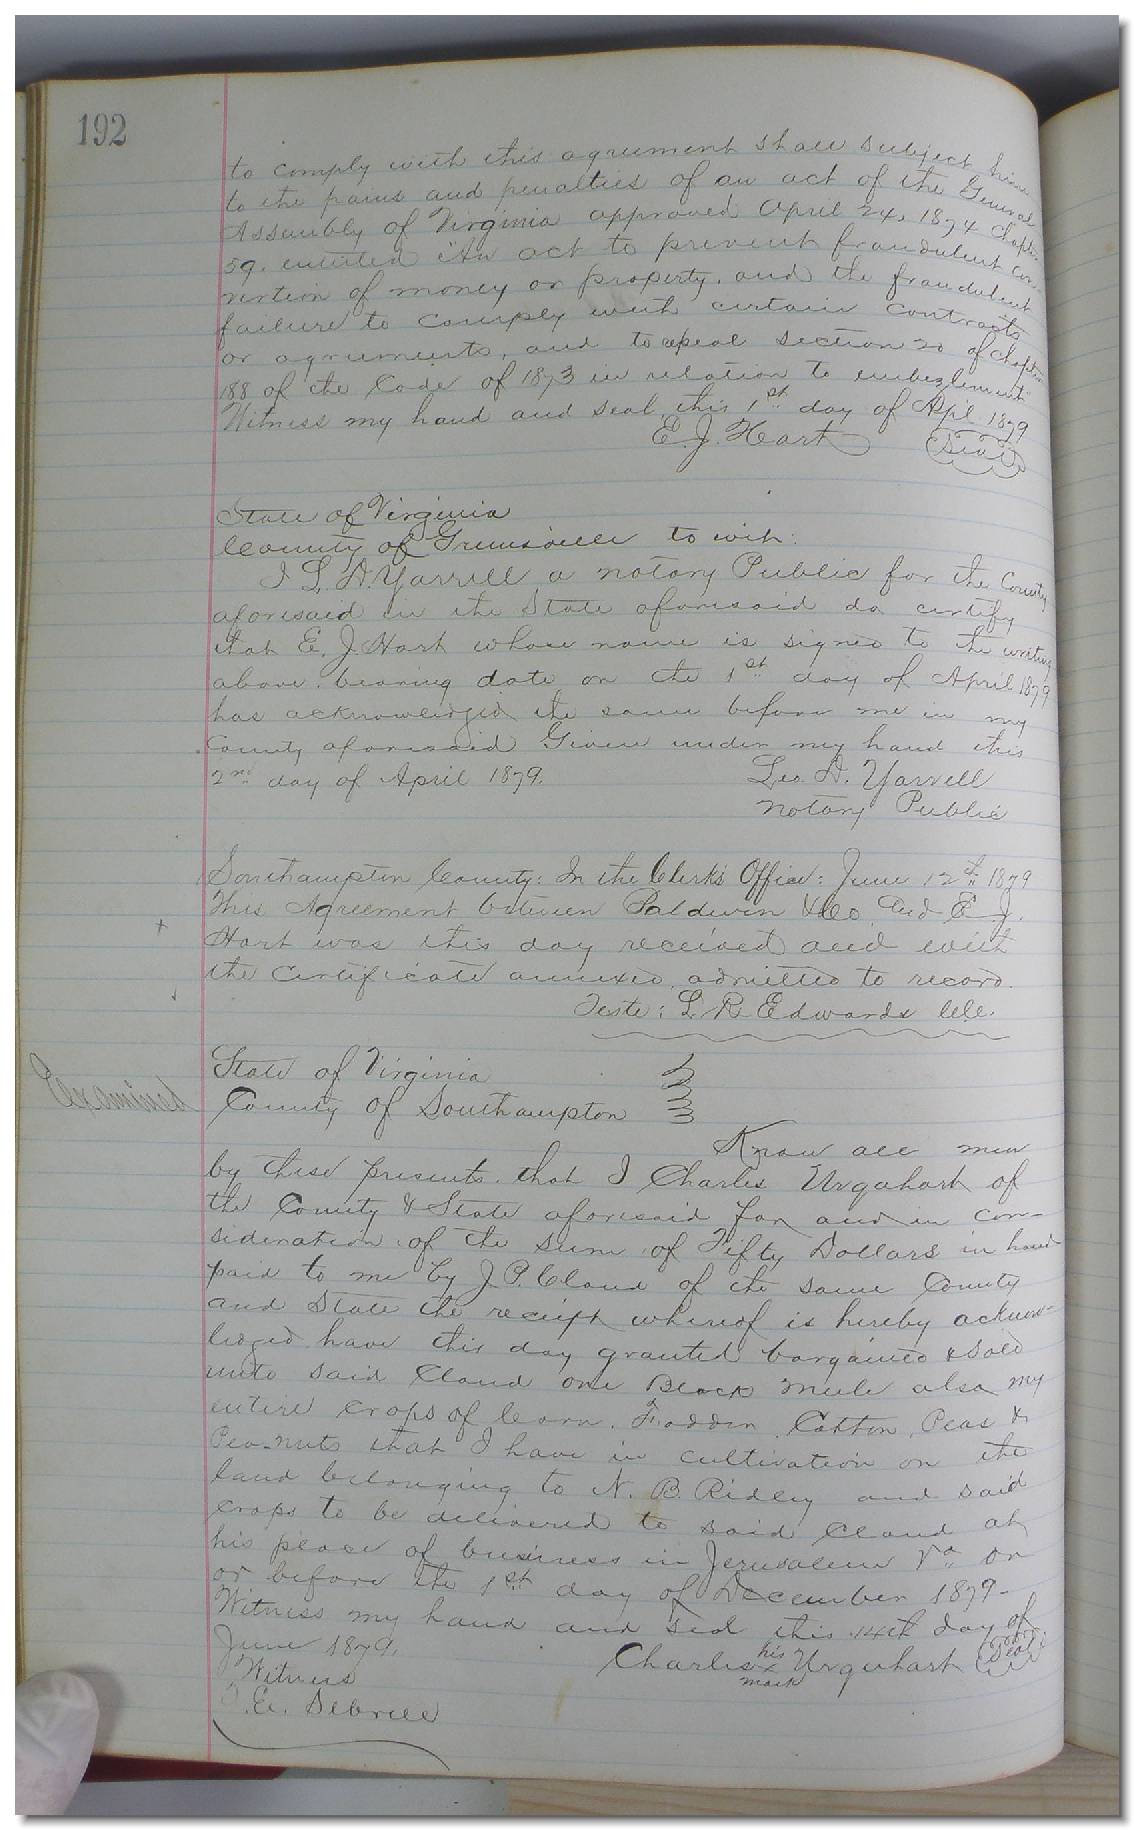 192
to comply with this agreement shall subject him
to the pains and penalties of an act of the General
Assembly of Virginia approved April 24, 1874 Chapter
59. entitled "An act to prevent fraudulent con-
vertion of money or property, and the fraudulent
failure to comply with certain contracts
or agreements, and to repeal section 20 of Chapter
188 of the Code of 1873 in relation to embezlement
Witness my hand and seal, this 1st day of Apl 1879
E. J. Hart Seal
State of Virginia
County of Greensville to wit:
I L. D. Yarrell a notary Public for the County
aforesaid in the State aforesaid do certify
that E. J. Hart whose name is signed to the writing
above bearing date on the 1st day of April 1879
has acknowledged the same before me in my
County aforesaid Given under my hand this
2nd day of April 1879.
Leo. D. Yarrell
Notary Public
Southampton County: In the Clerk's Office: June 12th 1879
This Agreement between Baldwin & Co. and E. J.
Hart was this day received and with
the certificate annexed, admitted to record.
Teste: L. R. Edwards
Examined
State of Virginia
County of Southampton
Know all men
by these presents that I Charles Urquhart of
the County & State aforesaid for and in con-
sideration of the sum of Fifty Dollars in hand
paid to me by J. P. Claud of the same County
and State the receipt whereof is hereby acknow-
ledged have this day granted bargained & sold
unto said Claud one Black mule also my
entire crops of Corn, Fodder, Cotton, Peas &
Pea-nuts that I have in cultivation on the
land belonging to N. B. Ridley and said
crops to be delivered to said Claud at
his place of business in Jerusalem Va on
or before the 1st day of December 1879-
Witness my hand and seal this 14th day of
June 1879.
Charles his x mark Urquhart Seal
Witness